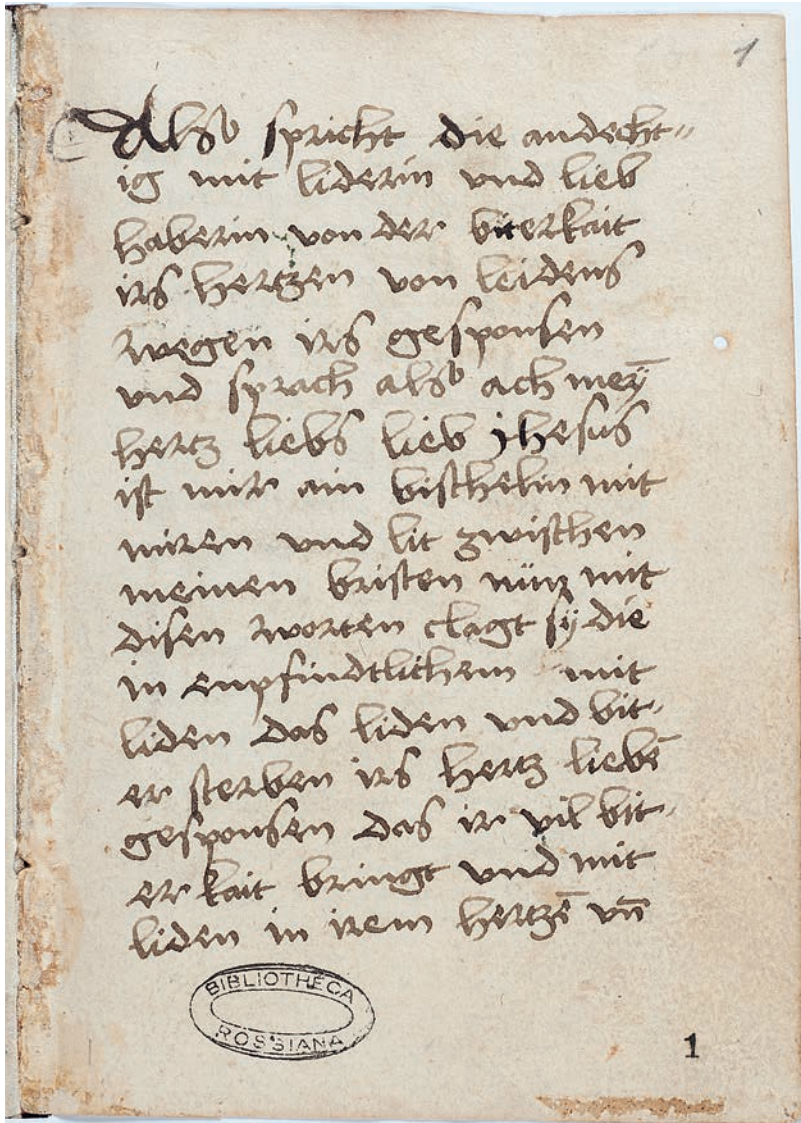 1
Also spricht die andecht⸗
ig mit liderin und lieb
haberin von der biterkait
irs hertzen von leidens
wegen irs gesponsen
und sprach also ach mey̅
hertz liebs lieb jhesus
ist mir ain bischelin mit
mirren und lit zwischen
meinen bristen nün mit
disen worten clagt sÿ die
in enpfindtlichem mit
liden das liden und bit⸗
er sterben irs hertz liebe̅
gesponsen das ir vil bit⸗
er kait bringt und mit
liden in irem hertze̅ vn̅
BIBLIOTHECA
ROSSIANA
1